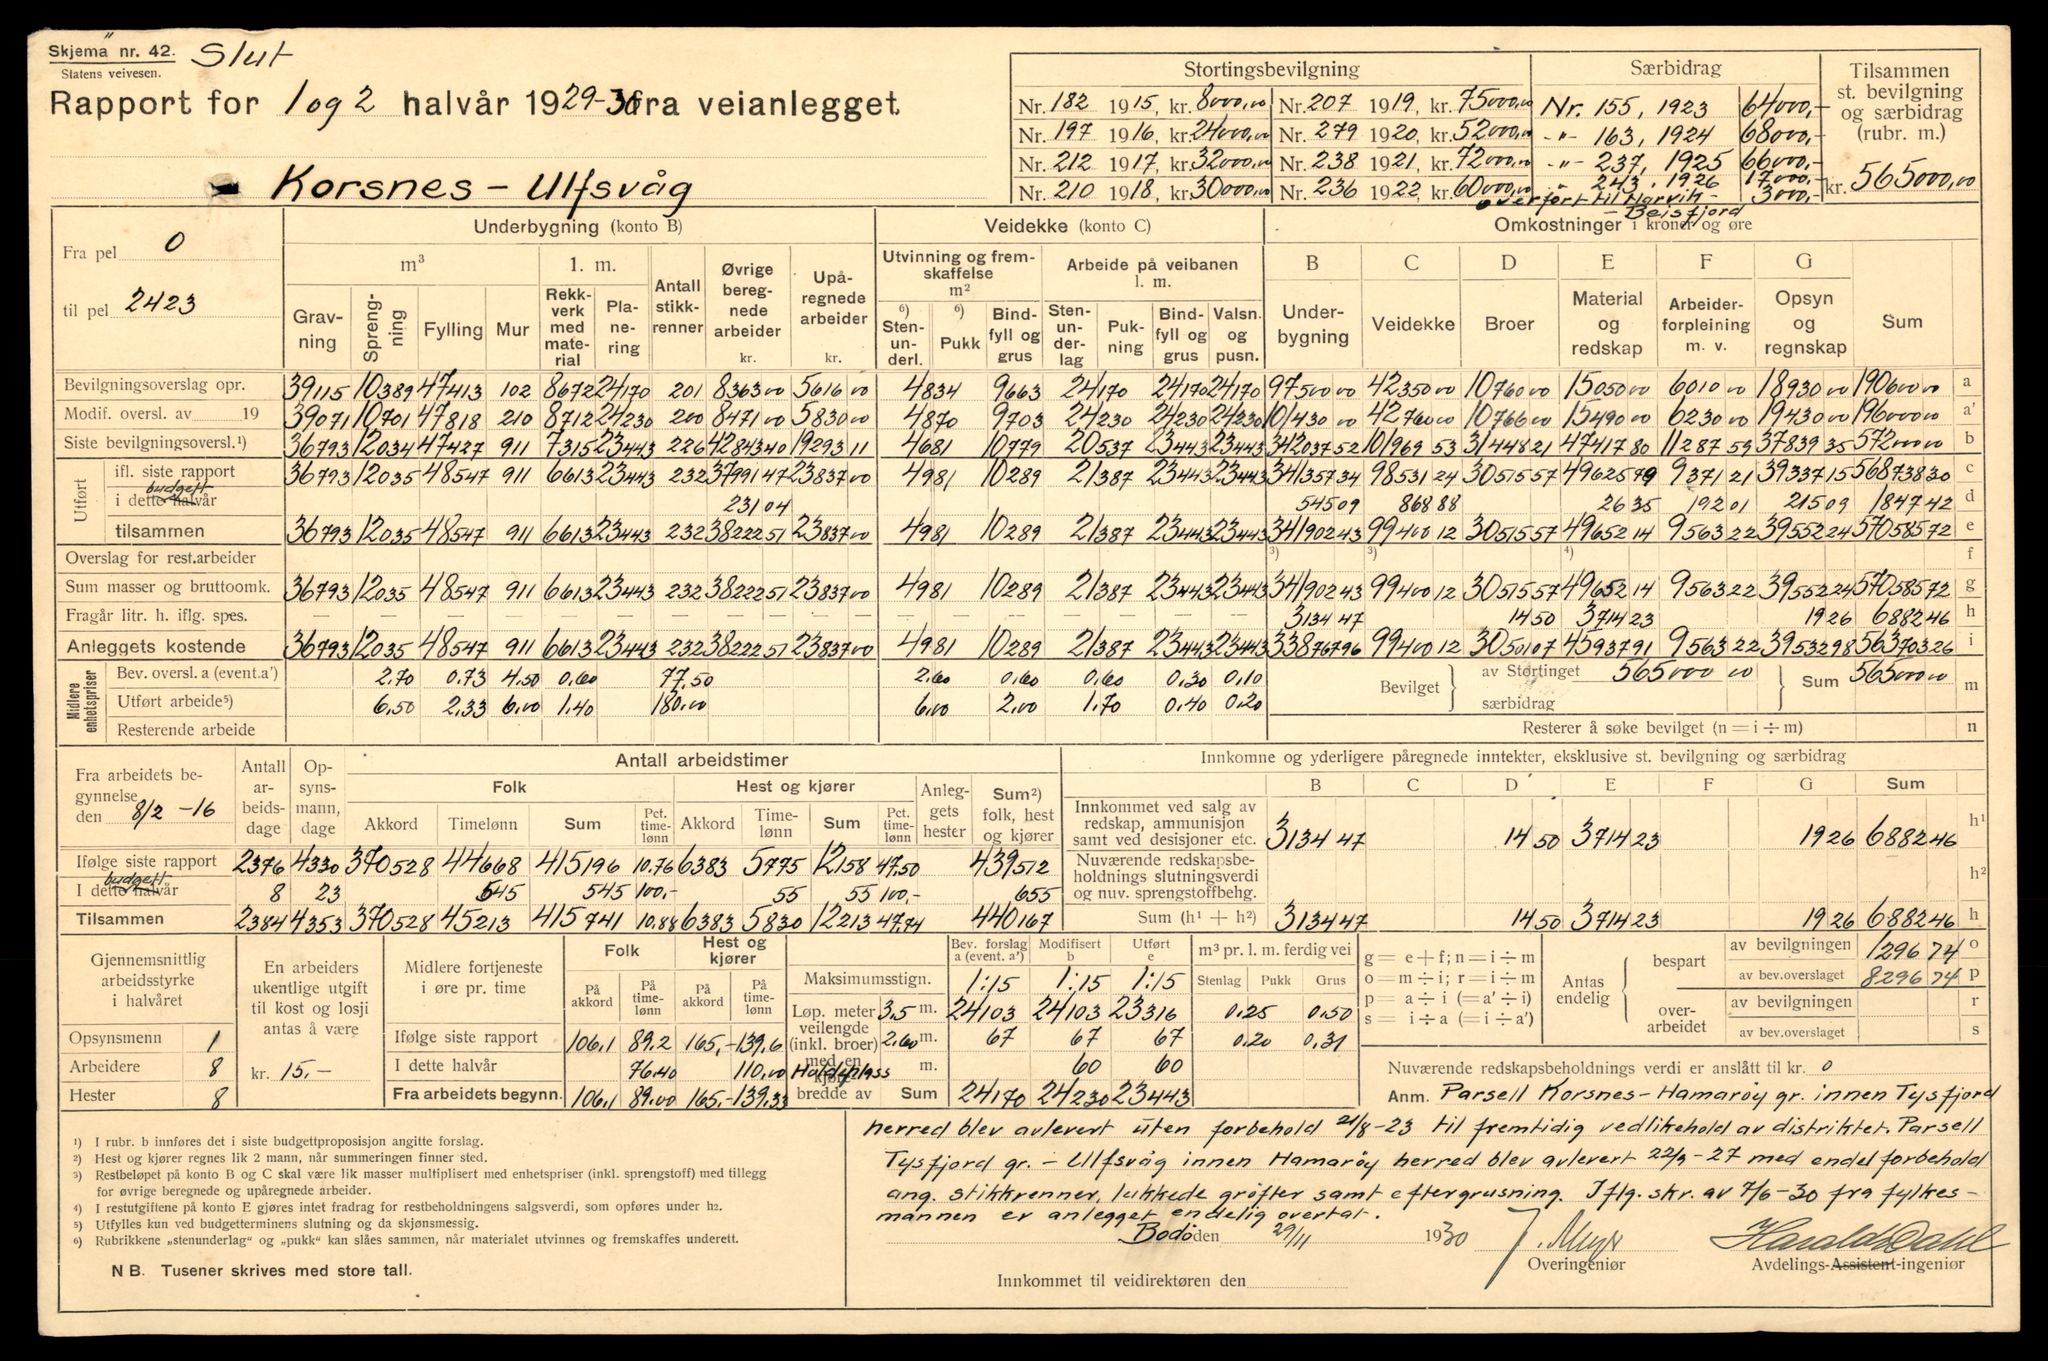 Skjema nr. 42. Slut
Statens veivesen.
Rapport for 1 og 2 halvår 1929-30 fra veianlegget
Korsnes - Ulfsvåg
Stortingsbevilgning | Særbidrag | Tilsammen st. bevilgning og særbidrag (rubr. m.)
Nr. 182 1915, kr. 8000,00 Nr. 207 1919, kr. 75000,00 Nr. 155, 1923 64000,-
Nr. 197 1916, kr. 24000,00 Nr. 279 1920, kr. 52000,00 -"- 163, 1924 68000,-
Nr. 212 1917, kr. 32000,00 Nr. 238 1921, kr. 72000,00 -"- 237, 1925 66000,-
Nr. 210 1918, kr. 30000,00 Nr. 236 1922, kr. 60000,00 " 243, 1926 17000,- kr. 565000,00
overført til Harvik - Beisfjord 3000,-
Fra pel 0
til pel 2423
Underbygning (konto B) | Veidekke (konto C) | Omkostninger i kroner og øre
m³ | l. m. | Antall stikkrenner | Øvrige beregnede arbeider kr. | Upåregnede arbeider kr. | Utvinning og fremskaffelse m² | Arbeide på veibanen l. m. | B | C | D | E | F | G
Gravning | Sprengning | Fylling | Mur | Rekkverk med material | Planering | ⁶) Stenunderl. | ⁶) Pukk | Bindfyll og grus | Stenunderlag | Pukning | Bindfyll og grus | Valsn. og pusn. | Underbygning | Veidekke | Broer | Material og redskap | Arbeiderforpleining m. v. | Opsyn og regnskap | Sum
Bevilgningsoverslag opr. 39115 10389 47413 102 8672 24170 201 8363 00 5616 00 4834 9663 24170 24170 24170 97500 00 42350 00 10760 00 15050 00 6010 00 18930 00 190600 00 a
Modif. oversl. av 19 39071 10701 47818 210 8712 24230 200 8471 00 5830 00 4870 9703 24230 24230 24230 101430 00 42760 00 10766 00 15490 00 6230 00 19430 00 196000 00 a'
Siste bevilgningsoversl.¹) 36793 12034 47427 911 7315 23443 226 42843 40 19293 11 4681 10779 20537 23443 23443 342037 52 101969 53 31448 21 47417 80 11287 59 37839 35 572000 00 b
Utført
ifl. siste rapport 36793 12035 48547 911 6613 23443 232 37991 47 23837 00 4981 10289 21387 23443 23443 341357 34 98531 24 30515 57 49625 79 9371 21 39337 15 568738 30 c
i dette halvår budgett 231 04 545 09 868 88 26 35 192 01 215 09 1847 42 d
tilsammen 36793 12035 48547 911 6613 23443 232 38222 51 23837 00 4981 10289 21387 23443 23443 341902 43 99400 12 30515 57 49652 14 9563 22 39552 24 570585 72 e
Overslag for rest.arbeider ³) ³) ⁴) f
Sum masser og bruttoomk. 36793 12035 48547 911 6613 23443 232 38222 51 23837 00 4981 10289 21387 23443 23443 341902 43 99400 12 30515 57 49652 14 9563 22 39552 24 570585 72 g
Fragår litr. h. iflg. spes. 3134 47 14 50 3714 23 19 26 6882 46 h
Anleggets kostende 36793 12035 48547 911 6613 23443 232 38222 51 23837 00 4981 10289 21387 23443 23443 338767 96 99400 12 30501 07 45937 91 9563 22 39532 98 563703 26 i
Midlere enhetspriser
Bev. oversl. a (event.a') 2.70 0.73 4.50 0.60 77.50 2.60 0.60 0.60 0.30 0.10
Utført arbeide⁵) 6.50 2.33 6.00 1.40 180.00 6.00 2.00 1.70 0.40 0.20
Resterende arbeide
Bevilget av Stortinget 565000 00 særbidrag Sum 565000 00 m
Resterer å søke bevilget (n = i ÷ m) n
Fra arbeidets begynnelse den 8/2 -16
Antall arbeidsdage | Opsynsmann, dage | Antall arbeidstimer
Folk | Hest og kjører | Anleggets hester | Sum²) folk, hest og kjører
Akkord | Timelønn | Sum | Pct. timelønn | Akkord | Timelønn | Sum | Pct. timelønn
Ifølge siste rapport 2376 4330 370528 44668 415196 10.76 6383 5775 12158 47.50 439512
I dette halvår budgett 8 23 545 545 100,- 55 55 100,- 655
Tilsammen 2384 4353 370528 45213 415741 10.88 6383 5830 12213 47.74 440167
Innkomne og yderligere påregnede inntekter, eksklusive st. bevilgning og særbidrag
B | C | D | E | F | G | Sum
Innkommet ved salg av redskap, ammunisjon samt ved desisjoner etc. 3134 47 14 50 3714 23 19 26 6882 46 h¹
Nuværende redskapsbeholdnings slutningsverdi og nuv. sprengstoffbehg. h²
Sum (h¹ + h²) 3134 47 14 50 3714 23 19 26 6882 46 h
Gjennemsnittlig arbeidsstyrke i halvåret
Opsynsmenn 1
Arbeidere 8
Hester 8
En arbeiders ukentlige utgift til kost og losji antas å være
kr. 15,-
Midlere fortjeneste i øre pr. time | Folk | Hest og kjører
På akkord | På timelønn | På akkord | På timelønn
Ifølge siste rapport 106,1 89.2 165,- 139.6
I dette halvår 76.40 110,00
Fra arbeidets begynn. 106,1 89.00 165,- 139.33
Bev. forslag a (event. a') | Modifisert b | Utført e
Maksimumsstign. 1:15 1:15 1:15
Løp. meter veilengde (inkl. broer) med en kjørebredde av
3.5 m. 24103 24103 23316
2.60 m. 67 67 67
Holdeplass m. 60 60
Sum 24170 24230 23443
m³ pr. l. m. ferdig vei
Stenlag | Pukk | Grus
0.25 0.50
0.20 0.31
g = e + f; n = i ÷ m
o = m ÷ i; r = i ÷ m
p = a ÷ i (= a' ÷ i)
s = i ÷ a (= i ÷ a')
Antas endelig
bespart av bevilgningen 1296 74 o
av bev.overslaget 8296 74 p
overarbeidet av bevilgningen r
av bev.overslaget s
Nuværende redskapsbeholdnings verdi er anslått til kr. 0
Anm. Parsell Korsnes - Hamarøy gr. innen Tysfjord
herred blev avlevert uten forbehold 21/8-23 til fremtidig vedlikehold av distriktet. Parsell
Tysfjord gr. - Ulfsvåg innen Hamarøy herred blev avlevert 22/9-27 med endel forbehold
ang. stikkrenner, lukkede grøfter samt eftergrusning. Iflg. skr. av 7/6-30 fra fylkes-
mannen er anlegget endelig overtat.
Bodø den 29/11 1930
Overingeniør
Harald Dahl
Avdelings-Assistent-ingeniør
Innkommet til veidirektøren den
¹) I rubr. b innføres det i siste budgettproposisjon angitte forslag.
²) Hest og kjører regnes lik 2 mann, når summeringen finner sted.
³) Restbeløpet på konto B og C skal være lik masser multiplisert med enhetspriser (inkl. sprengstoff) med tillegg
for øvrige beregnede og upåregnede arbeider.
⁴) I restutgiftene på konto E gjøres intet fradrag for restbeholdningens salgsverdi, som opføres under h2.
⁵) Utfylles kun ved budgetterminens slutning og da skjønsmessig.
⁶) Rubrikkene „stenunderlag" og „pukk" kan slåes sammen, når materialet utvinnes og fremskaffes underett.
N B. Tusener skrives med store tall.